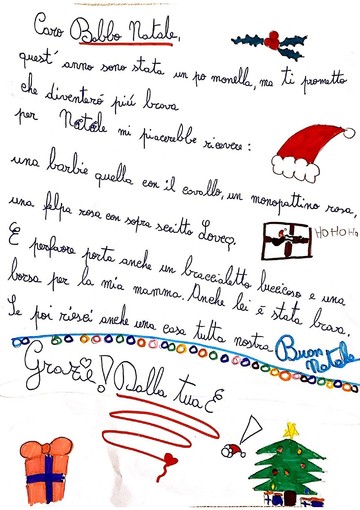 Caro Babbo Natale,
quest' anno sono stata un po monella, ma ti prometto
che diventeró piú brava
per Natale mi piacerebbe ricevere:
una barbie quella con il cavallo, un monopattino rosa,
una felpa rosa con sopra scritto Loveç.
HO HO HO
E perfavore porta anche un braccialetto luccicoso e una
borsa per la mia mamma. Anche lei é stata brava.
Se poi riesci anche una casa tutta nostra.
Buon
Natale
Grazie! Dalla tua E